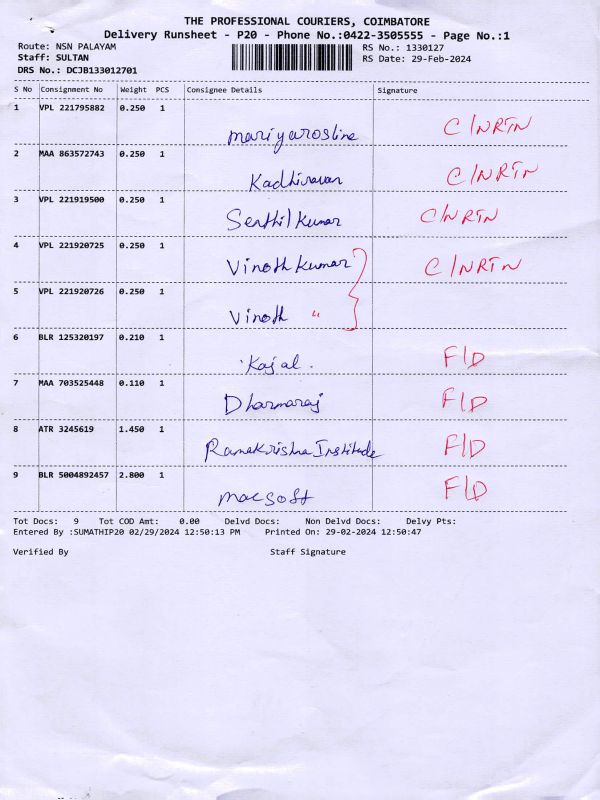 THE PROFESSIONAL COURIERS, COIMBATORE
Delivery Runsheet - P20 - Phone No.:0422-3505555 - Page No.:1
Route: NSN PALAYAM RS No.: 1330127
Staff: SULTAN RS Date: 29-Feb-2024
DRS No.: DCJB133012701
S No Consignment No Weight PCS Consignee Details Signature
1 VPL 221795882 0.250 1
mariyarosline C/NRTN
2 MAA 863572743 0.250 1
Kadhiravan C/NRTN
3 VPL 221919500 0.250 1
Senthil kumar C/NRTN
4 VPL 221920725 0.250 1
Vinoth kumar C/NRTN
5 VPL 221920726 0.250 1
Vinoth "
6 BLR 125320197 0.210 1
Kajal. F/D
7 MAA 703525448 0.110 1
Dharmaraj F/D
8 ATR 3245619 1.450 1
Ramakrishna Institude F/D
9 BLR 5004892457 2.800 1
macsoft F/D
Tot Docs: 9 Tot COD Amt: 0.00 Delvd Docs: Non Delvd Docs: Delvy Pts:
Entered By :SUMATHIP20 02/29/2024 12:50:13 PM Printed On: 29-02-2024 12:50:47
Verified By Staff Signature